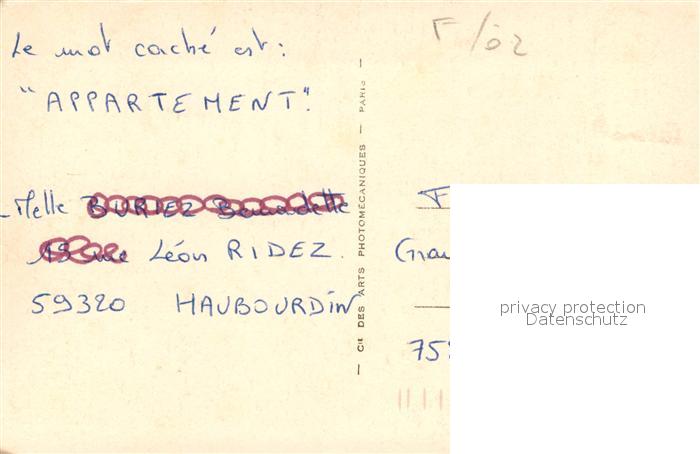 Le mot caché est :
"APPARTEMENT".
F/02
Melle
Léon RIDEZ.
59320 HAUBOURDIN
Cie DES ARTS PHOTOMÉCANIQUES — PARIS —
F
Grau
75
privacy protection
Datenschutz